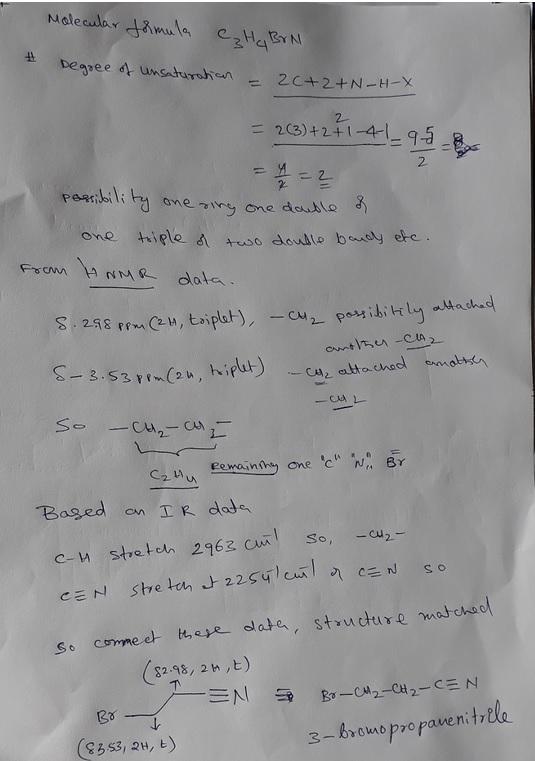 Molecular formula C3H4BrN
# Degree of unsaturation = 2C+2+N-H-X / 2
= 2(3)+2+1-4-1 / 2 = 9-5 / 2 =
= 4/2 = 2
possibility one ring one double or
one triple or two double bonds etc.
From HNMR data.
δ. 2.98 ppm (2H, triplet), -CH2 possibitily attached
another -CH2
δ- 3.53 ppm (2H, triplet) -CH2 attached another
-CH2
So -CH2-CH2-
C2H4 Remaining one "C" "N" Br
Based on IR data
C-H stretch 2963 cm-1 so, -CH2-
C≡N stretch 2254 cm-1 of C≡N so
So connect these data, structure matched
(δ2.98, 2H, t)
Br ≡N ⇒ Br-CH2-CH2-C≡N
(δ3.53, 2H, t) 3-bromopropanenitrile